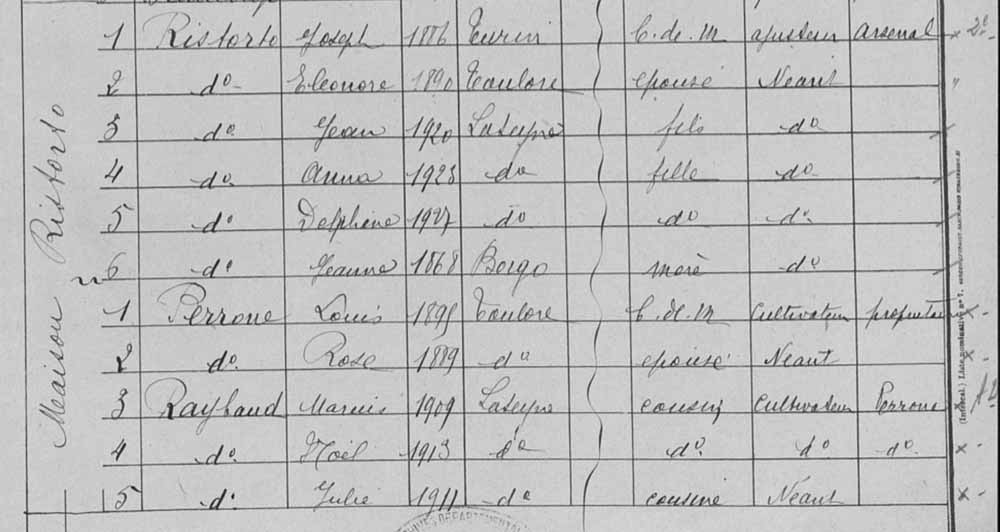 Maison Ristorto
1 Ristorto Joseph 1886 Turin C. de. M ajusteur Arsenal
2 do Eleonore 1890 Toulore epouse Néant
3 do Jean 1920 LaSeyne fils do
4 do Anna 1923 do fille do
5 do Delphine 1927 do do do
6 do Jeanne 1868 Borgo merè do
1 Perrone Louis 1895 Toulore C. de. M Cultivateur proprietaire
2 do Rose 1889 do epouse Néant
3 Raybaud Marius 1909 LaSeyne cousin Cultivateur Perrone
4 do Noël 1913 do do do do
5 do Julie 1911 do cousine Néant